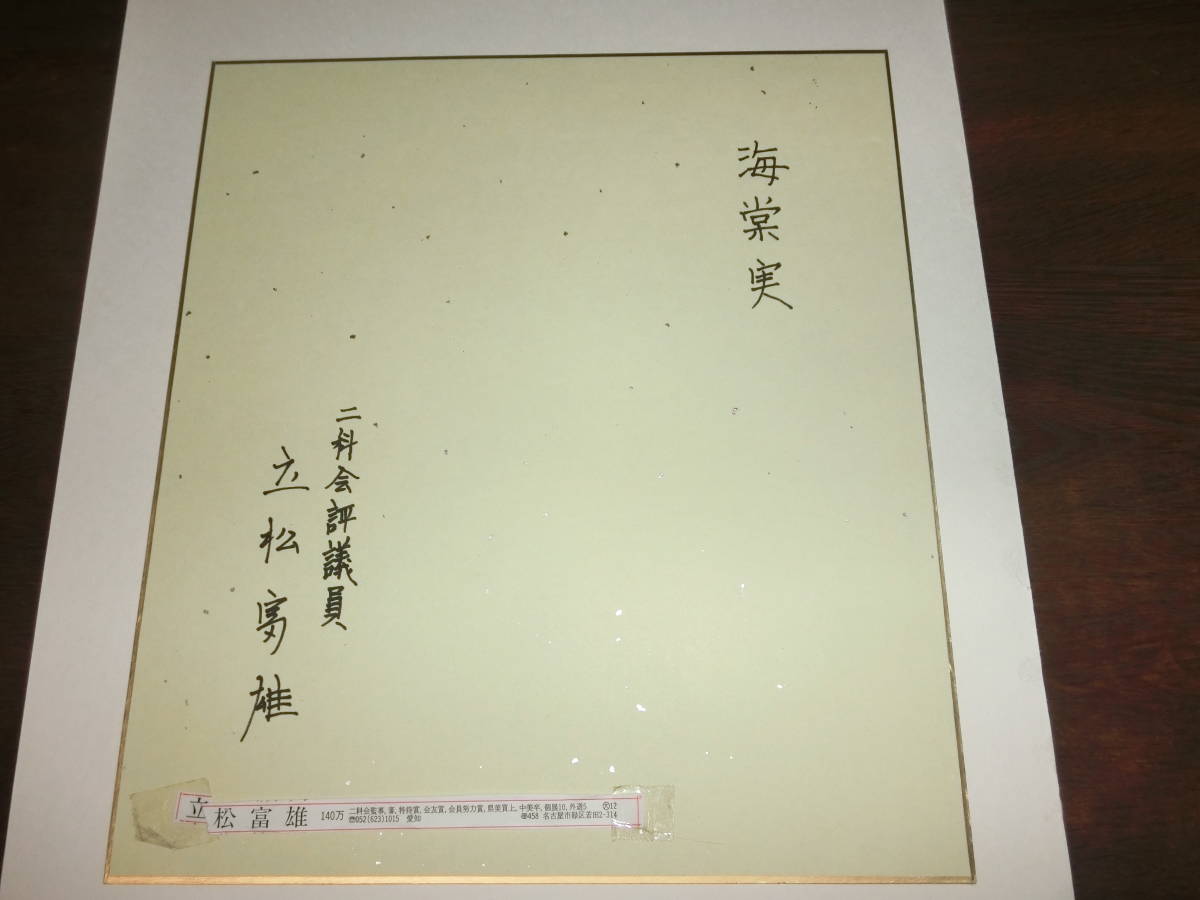 海棠実
二科会評議員
立松富雄
立松富雄 140万 二科会監事,審,特待賞,会友賞,会員努力賞,県美買上,中美卒,個展10,外遊5
☎052(623)1015 愛知 〠458 名古屋市緑区若田2-314